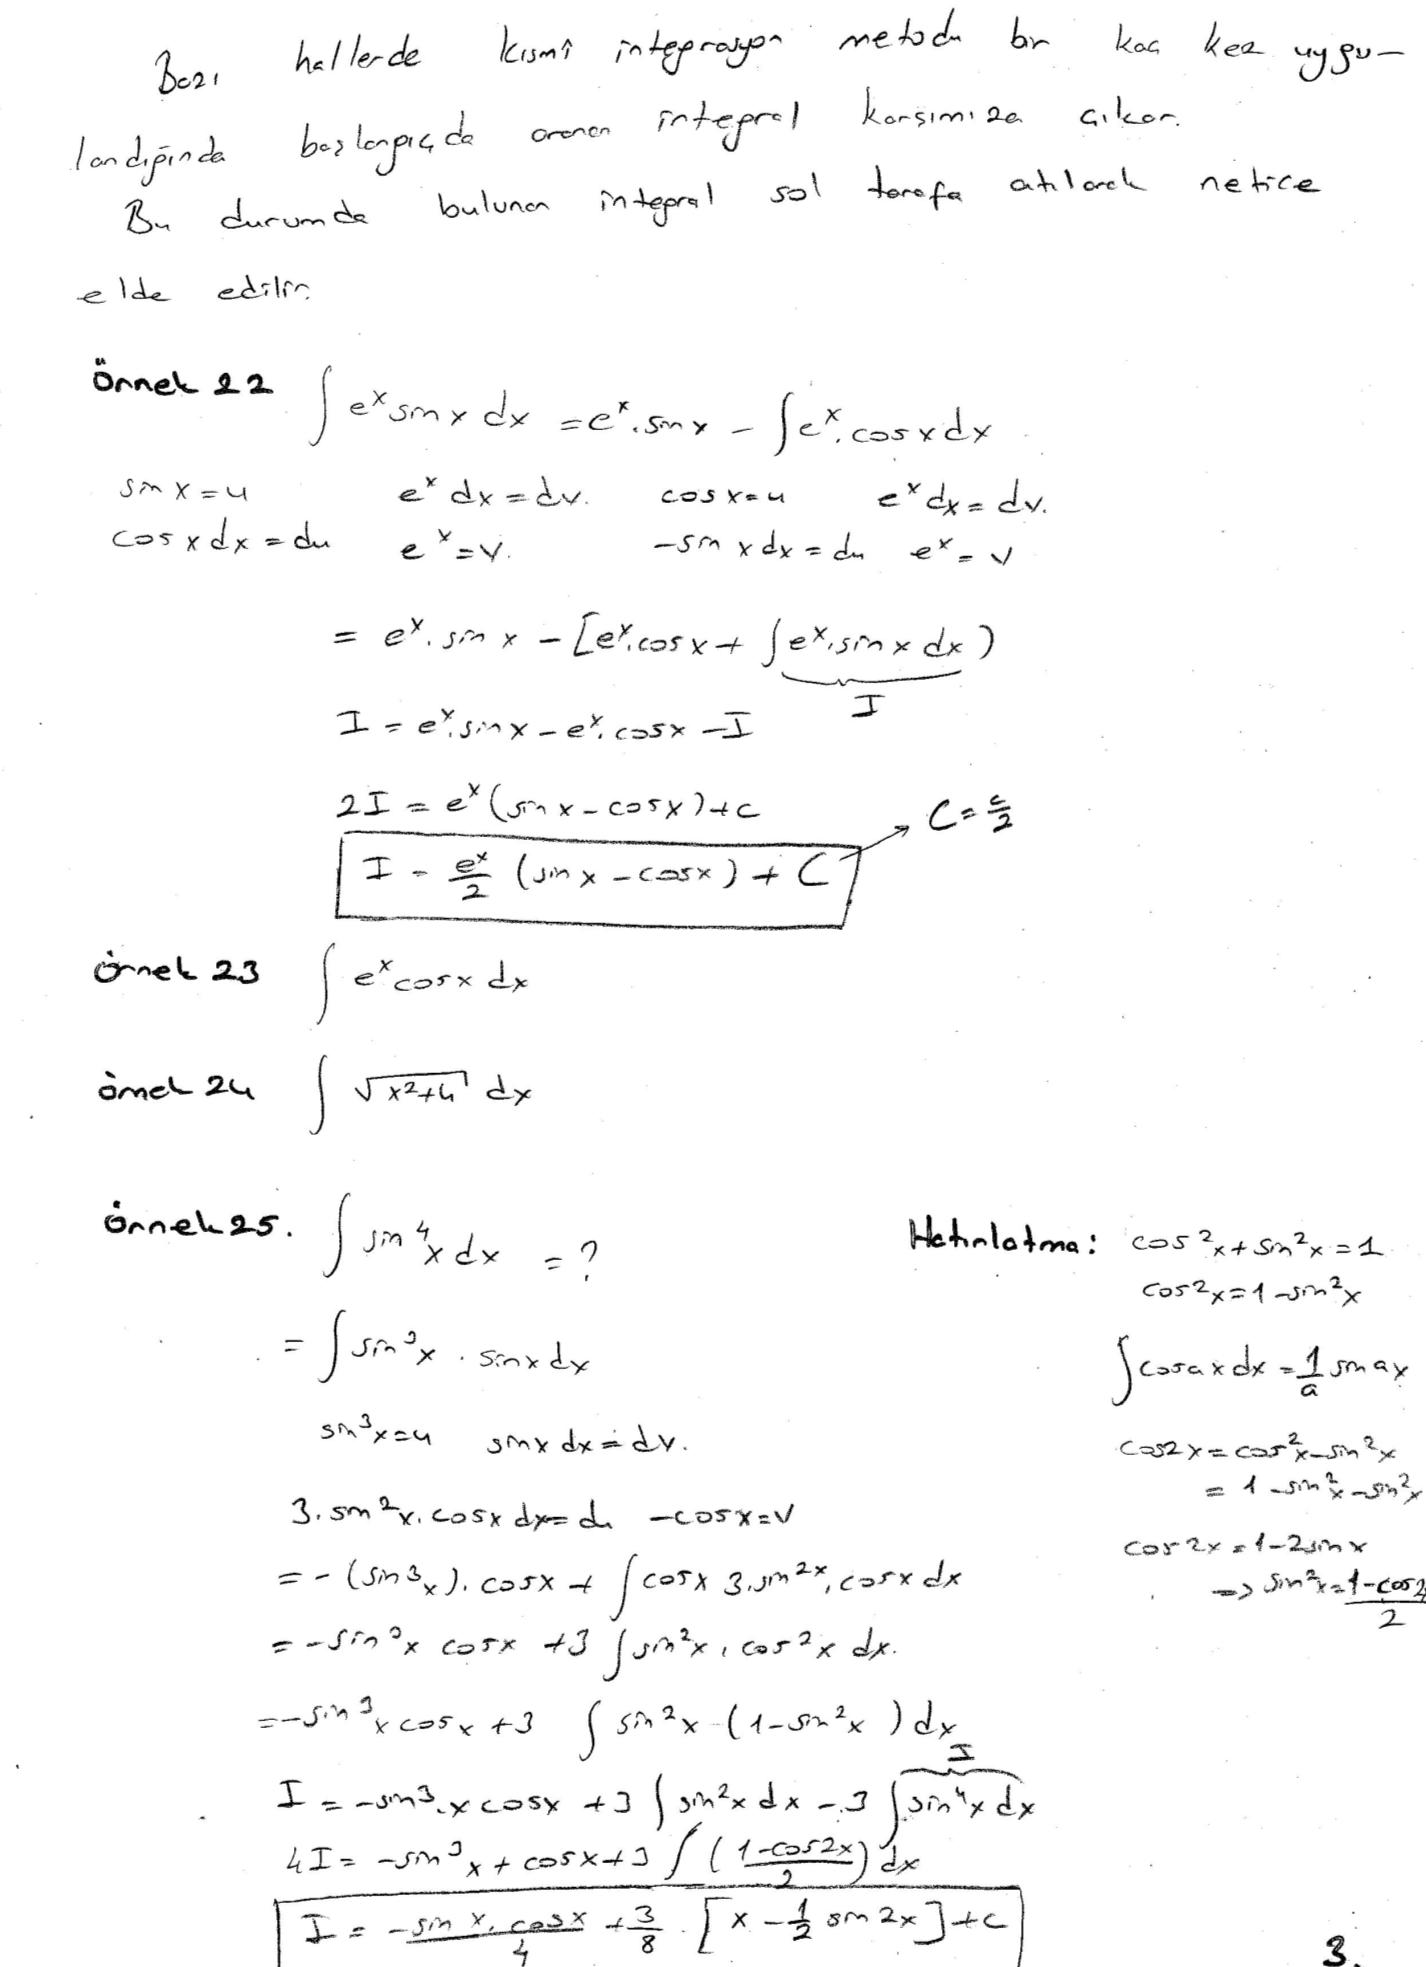 Bazı hallerde kısmî integrasyon metodu bir kaç kez uygu-
landığında başlangıçda aranan integral karşımıza çıkar.
Bu durumda bulunan integral sol tarafa atılarak netice
elde edilir.
Örnek 22 ∫ e^x sin x dx = e^x . sin x - ∫ e^x . cos x dx
sin x = u e^x dx = dv. cos x = u e^x dx = dv.
cos x dx = du e^x = v. -sin x dx = du e^x = v
= e^x . sin x - [e^x . cos x + ∫ e^x . sin x dx)
I
I = e^x . sin x - e^x . cos x - I
2I = e^x (sin x - cos x) + c
C = c/2
I = e^x/2 (sin x - cos x) + C
Örnek 23 ∫ e^x cos x dx
Örnek 24 ∫ √(x²+4) dx
Örnek 25. ∫ sin⁴x dx = ?
= ∫ sin³x . sin x dx
sin³x = u sin x dx = dv.
3. sin²x . cos x dx = du -cos x = v
= - (sin³x) . cos x + ∫ cos x 3. sin²x . cos x dx
= - sin³x cos x + 3 ∫ sin²x . cos²x dx.
= - sin³x cos x + 3 ∫ sin²x . (1 - sin²x) dx
I
I = - sin³.x cos x + 3 ∫ sin²x dx - 3 ∫ sin⁴x dx
4I = - sin³x + cos x + 3 ∫ ((1 - cos 2x)/2) dx
I = (- sin x . cos x)/4 + 3/8 . [x - 1/2 sin 2x] + c
Hatırlatma: cos²x + sin²x = 1
cos²x = 1 - sin²x
∫ cos ax dx = 1/a sin ax
cos 2x = cos²x - sin²x
= 1 - sin²x - sin²x
cos 2x = 1 - 2 sin x
=> sin²x = (1 - cos 2)/2
3.